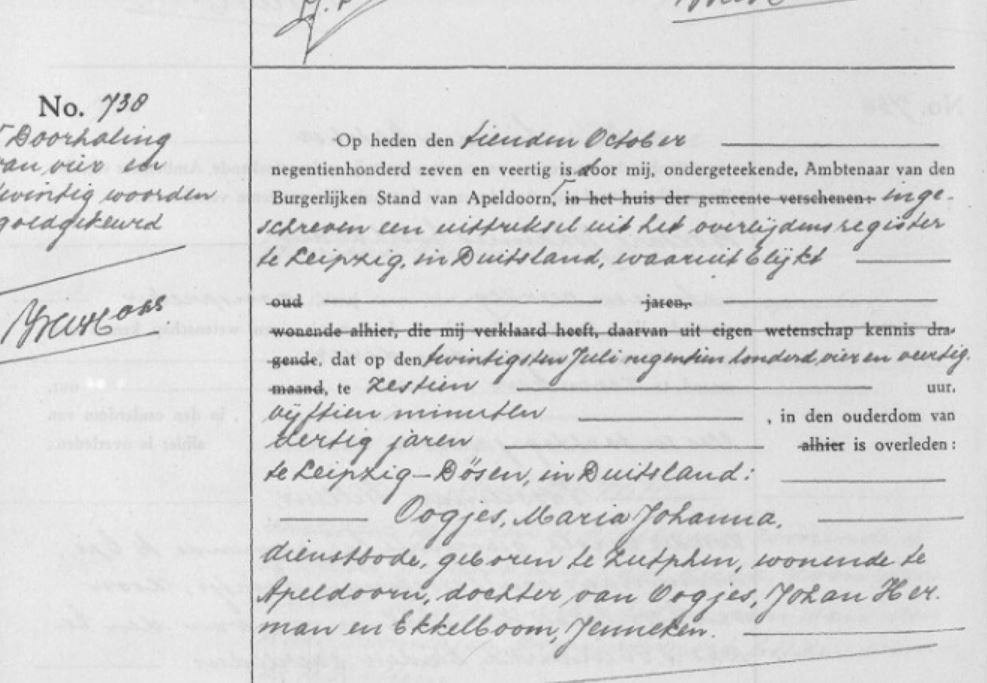 No. 738
Doorhaling
van vier en
twintig woorden
goedgekeurd
Op heden den tienden October
negentienhonderd zeven en veertig is door mij, ondergeteekende, Ambtenaar van den
Burgerlijken Stand van Apeldoorn, in het huis der gemeente verschenen: inge-
schreven een uittreksel uit het overlijdensregister
te Leipzig, in Duitsland, waaruit blijkt
oud jaren,
wonende alhier, die mij verklaard heeft, daarvan uit eigen wetenschap kennis dra-
gende, dat op den twintigsten Juli negentien honderd vier en veertig
maand, te zestien uur,
vijftien minuten , in den ouderdom van
dertig jaren alhier is overleden:
te Leipzig-Dösen, in Duitsland:
Oogjes, Maria Johanna,
dienstbode, geboren te Zutphen, wonende te
Apeldoorn, dochter van Oogjes, Johan Her-
man en Ekkelboom, Jenneken.